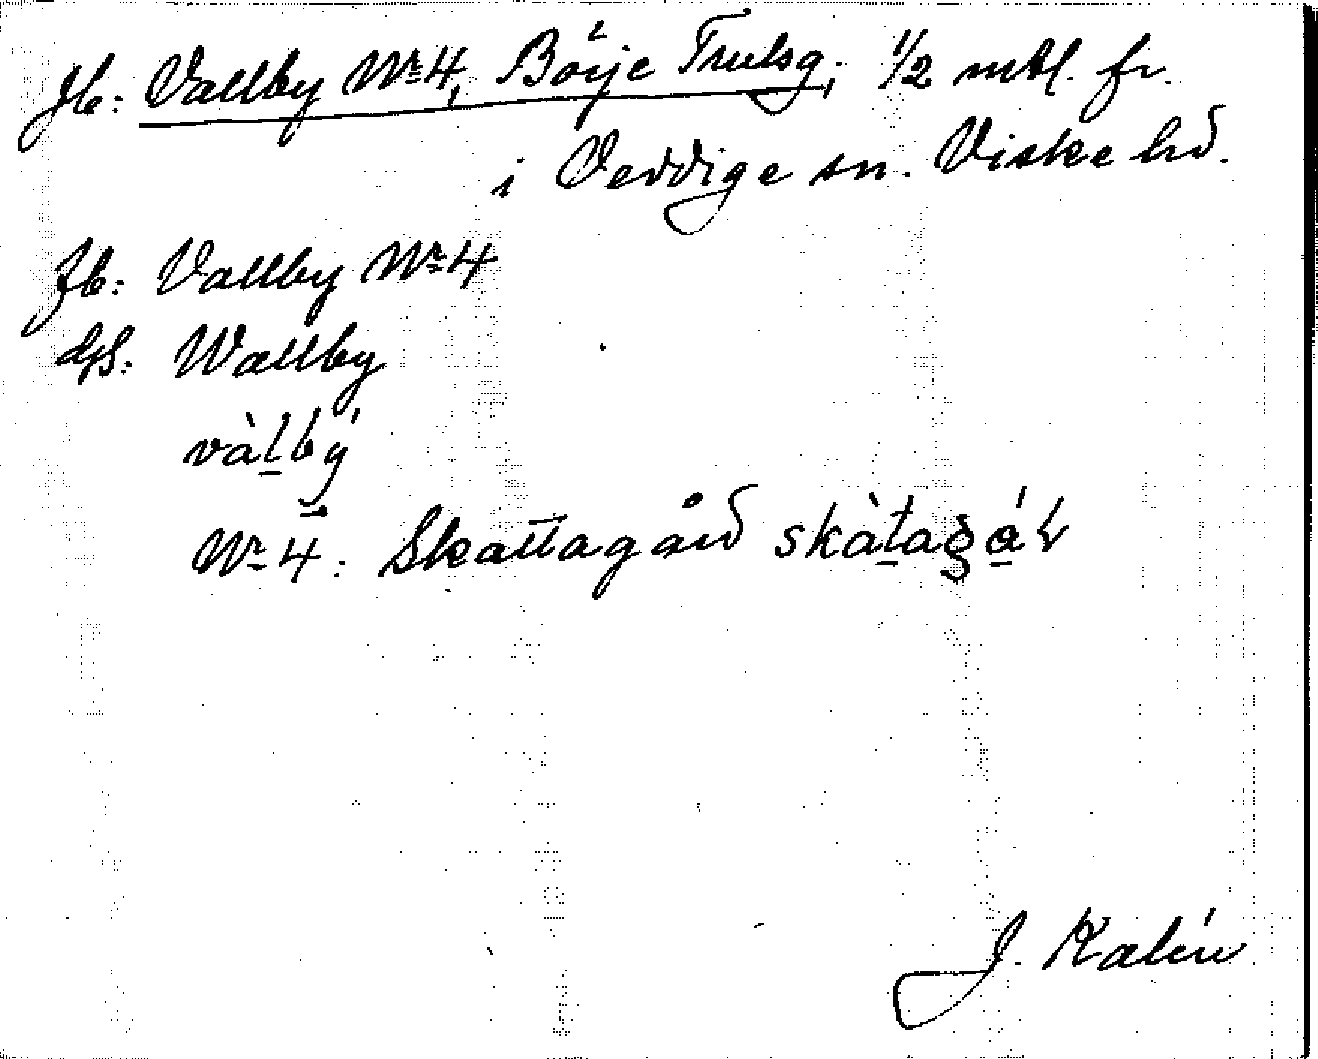 Jb: Vallby Nr 4, Börje Trulsg., 1/2 mtl. fr.
i Veddige sn. Viske hd.
Jb: Vallby Nr 4
Wallby
vàlbý
Nr 4: Skattagård skàtagár
J. Kalén